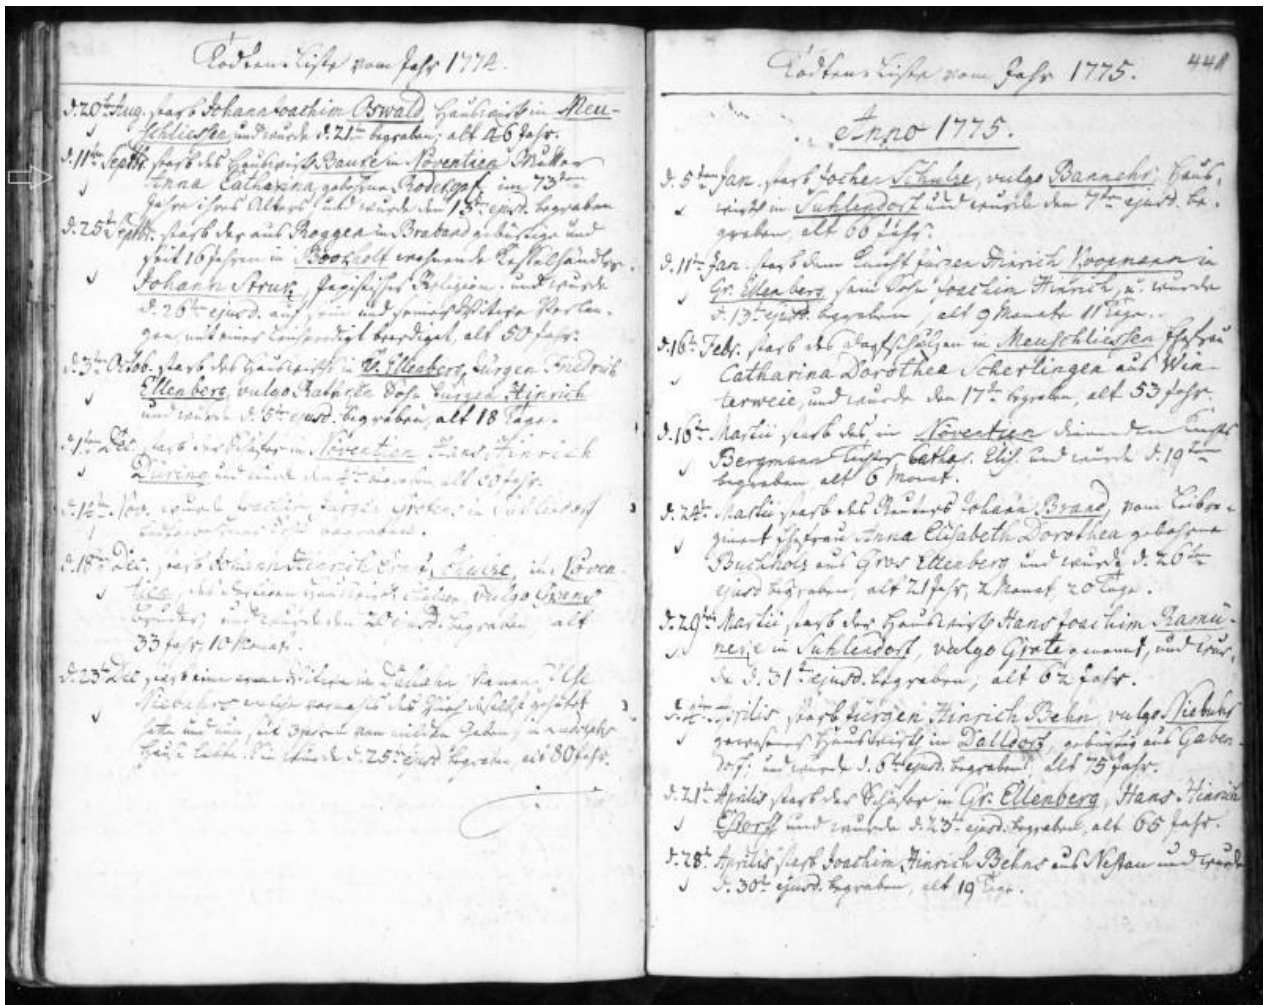 Todten-Liste vom Jahr 1774.
d. 20t Aug. starb Johann Joachim Oswald Hauswirth in Meu-
schliessen und wurde d. 21t begraben, alt 46 Jahr.
d. 11ten Septbr. starb des Hauswirth Bauke in Növentien Mutter
Anna Catharina, gebohrne im 73ten
Jahre ihres Alters und wurde den 13ten ejusd. begraben
d. 25t Septbr. starb der aus Roggen in Braband gebürtige und
seit 16 Jahren in Bockholt wohnende Kesselhändler
Johann Struk, Papistischer Religion und wurde
d. 26ten ejusd. auf sein und seiner Witwe Verlan-
gen mit einer beerdiget, alt 50 Jahr.
d. 3ten Octob. starb des Hauswirth in Kl. Ellenberg, Jürgen Friedrich
Ellenberg, vulgo Sohn Jürgen Hinrich
und wurde d. 5ten ejusd. begraben, alt 18 Tage.
d. 1ten Dec. starb der Schäfer in Növentien Hans Hinrich
Düring und wurde den begraben, alt 60 Jahr.
Nov. wurde Joachim Jürgen in Suhlendorf
begraben.
d. 18t Dec. starb Johann Heinrich Ernst Schulze, in Növen-
tien, des Hauswirth vulgo
Bruder, und wurde den 20 ejusd. begraben, alt
33 Jahr, 10 Monat.
d. 23t Dec starb eine arme Witwe in Dalldorf Namens Ilse
Niebuhrs welche vormahls das Vieh daselbst gehütet
hatte und nun, seit 3 Jahren von milden Gaben
lebte. Sie wurde d. 25ten ejusd. begraben, alt 80 Jahr.
Todten-Liste vom Jahr 1775.
441
Anno 1775.
d. 5ten Jan. starb Jochen Schulze, vulgo Bannehr, Haus-
wirth in Suhlendorf und wurde den 7ten ejusd. be-
graben, alt 66 Jahr.
d. 11ten Jan. starb dem Knecht Jürgen Hinrich Koopmann in
Gr. Ellenberg sein Sohn Joachim Hinrich, u. wurde
d. 13ten ejusd. begraben, alt 9 Monate 11 Tage.
d. 16ten Febr. starb des in Meuschliessen Ehefrau
Catharina Dorothea Scherlingen aus Win-
terweie, und wurde den 17ten begraben, alt 53 Jahr.
d. 16ten Martii starb des in Növentien dienenden Knechts
Bergmann Tochter Catha. Elis. und wurde d. 19ten
begraben alt 6 Monat.
d. 24ten Martii starb des Reuters Johann Brand, vom Leibre-
giment Ehefrau Anna Elisabeth Dorothea gebohrne
Buchholz aus Gros Ellenberg und wurde d. 26ten
ejusd begraben, alt 21 Jahr, 2 Monat, 20 Tage.
d. 29ten Martii starb der Hauswirth Hans Joachim Ramü-
nerje in Suhlendorf, vulgo Grote genannt, und wur-
de d. 31ten ejusd. begraben, alt 62 Jahr.
Aprilis starb Jürgen Hinrich Behn, vulgo Niebuhr
gewesener Hauswirth in Dalldorf, gebürtig aus Gaben-
dorf, und wurde d. 6ten ejusd. begraben, alt 75 Jahr.
d. 21t Aprilis starb der Schäfer in Gr. Ellenberg, Hans Hinrich
und wurde d. 23ten ejusd. begraben, alt 65 Jahr.
d. 28t. Aprilis starb Joachim Hinrich Behns aus Nestau und wurde
d. 30t ejusd. begraben, alt 19 Tage.